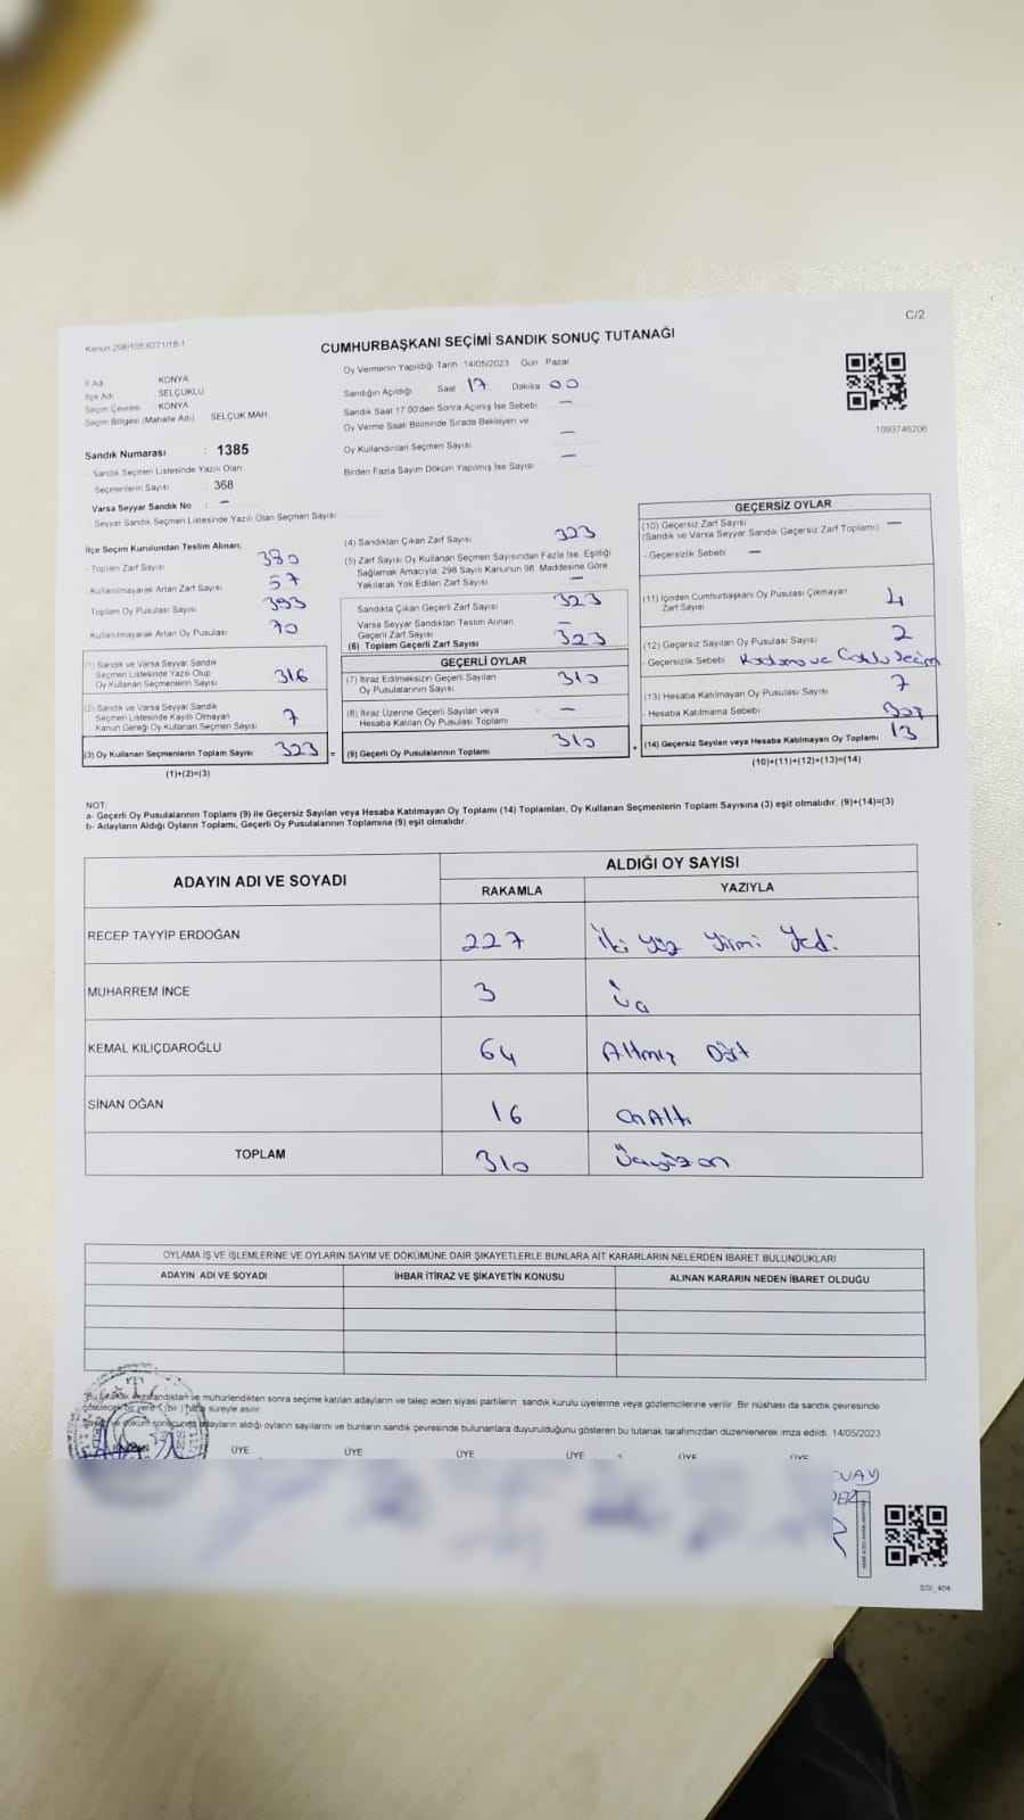 C/2
CUMHURBAŞKANI SEÇİMİ SANDIK SONUÇ TUTANAĞI
Oy Vermenin Yapıldığı Tarih 14/05/2023 Gün Pazar
İl Adı KONYA
İlçe Adı SELÇUKLU
Seçim Çevresi KONYA
Seçim Bölgesi (Mahalle Adı) SELÇUK MAH.
Sandığın Açıldığı Saat 17 Dakika 00
Sandık Saat 17.00'den Sonra Açılmış İse Sebebi —
Oy Verme Saati Bitiminde Sırada Bekleyen ve
Oy Kullandırılan Seçmen Sayısı —
Birden Fazla Sayım Döküm Yapılmış İse Sayısı —
1093746206
Sandık Numarası : 1385
Sandık Seçmen Listesinde Yazılı Olan
Seçmenlerin Sayısı : 368
Varsa Seyyar Sandık No : —
Seyyar Sandık Seçmen Listesinde Yazılı Olan Seçmen Sayısı
İlçe Seçim Kurulundan Teslim Alınan;
- Toplam Zarf Sayısı 380
- Kullanılmayarak Artan Zarf Sayısı 57
Toplam Oy Pusulası Sayısı 393
Kullanılmayarak Artan Oy Pusulası 70
(1) Sandık ve Varsa Seyyar Sandık
Seçmen Listesinde Yazılı Olup
Oy Kullanan Seçmenlerin Sayısı 316
(2) Sandık ve Varsa Seyyar Sandık
Seçmen Listesinde Kayıtlı Olmayan
Kanun Gereği Oy Kullanan Seçmen Sayısı 7
(3) Oy Kullanan Seçmenlerin Toplam Sayısı 323 =
(1)+(2)=(3)
(4) Sandıktan Çıkan Zarf Sayısı 323
(5) Zarf Sayısı Oy Kullanan Seçmen Sayısından Fazla İse, Eşitliği
Sağlamak Amacıyla, 298 Sayılı Kanunun 98. Maddesine Göre
Yakılarak Yok Edilen Zarf Sayısı —
Sandıkta Çıkan Geçerli Zarf Sayısı 323
Varsa Seyyar Sandıktan Teslim Alınan
Geçerli Zarf Sayısı —
(6) Toplam Geçerli Zarf Sayısı 323
GEÇERLİ OYLAR
(7) İtiraz Edilmeksizin Geçerli Sayılan
Oy Pusulalarının Sayısı 310
(8) İtiraz Üzerine Geçerli Sayılan veya
Hesaba Katılan Oy Pusulası Toplamı —
(9) Geçerli Oy Pusulalarının Toplamı 310 +
GEÇERSİZ OYLAR
(10) Geçersiz Zarf Sayısı
(Sandık ve Varsa Seyyar Sandık Geçersiz Zarf Toplamı) —
- Geçersizlik Sebebi —
(11) İçinden Cumhurbaşkanı Oy Pusulası Çıkmayan
Zarf Sayısı 4
(12) Geçersiz Sayılan Oy Pusulası Sayısı 2
- Geçersizlik Sebebi
(13) Hesaba Katılmayan Oy Pusulası Sayısı 7
- Hesaba Katılmama Sebebi Boş
(14) Geçersiz Sayılan veya Hesaba Katılmayan Oy Toplamı 13
(10)+(11)+(12)+(13)=(14)
NOT:
a- Geçerli Oy Pusulalarının Toplamı (9) ile Geçersiz Sayılan veya Hesaba Katılmayan Oy Toplamı (14) Toplamları, Oy Kullanan Seçmenlerin Toplam Sayısına (3) eşit olmalıdır. (9)+(14)=(3)
b- Adayların Aldığı Oyların Toplamı, Geçerli Oy Pusulalarının Toplamına (9) eşit olmalıdır.
ADAYIN ADI VE SOYADI ALDIĞI OY SAYISI
RAKAMLA YAZIYLA
RECEP TAYYİP ERDOĞAN 227 İki yüz Yirmi Yedi
MUHARREM İNCE 3 Üç
KEMAL KILIÇDAROĞLU 64 Altmış Dört
SİNAN OĞAN 16 OnAltı
TOPLAM 310 Üçyüzon
OYLAMA İŞ VE İŞLEMLERİNE VE OYLARIN SAYIM VE DÖKÜMÜNE DAİR ŞİKAYETLERLE BUNLARA AİT KARARLARIN NELERDEN İBARET BULUNDUKLARI
ADAYIN ADI VE SOYADI İHBAR İTİRAZ VE ŞİKAYETİN KONUSU ALINAN KARARIN NEDEN İBARET OLDUĞU
ve mühürlendikten sonra seçime katılan adayların ve talep eden siyasi partilerin sandık kurulu üyelerine veya gözlemcilerine verilir. Bir nüshası da sandık çevresinde
süreyle asılır.
adayların aldığı oyların sayılarını ve bunların sandık çevresinde bulunanlara duyurulduğunu gösteren bu tutanak tarafımızdan düzenlenerek imza edildi. 14/05/2023
ÜYE ÜYE ÜYE ÜYE ÜYE ÜYE